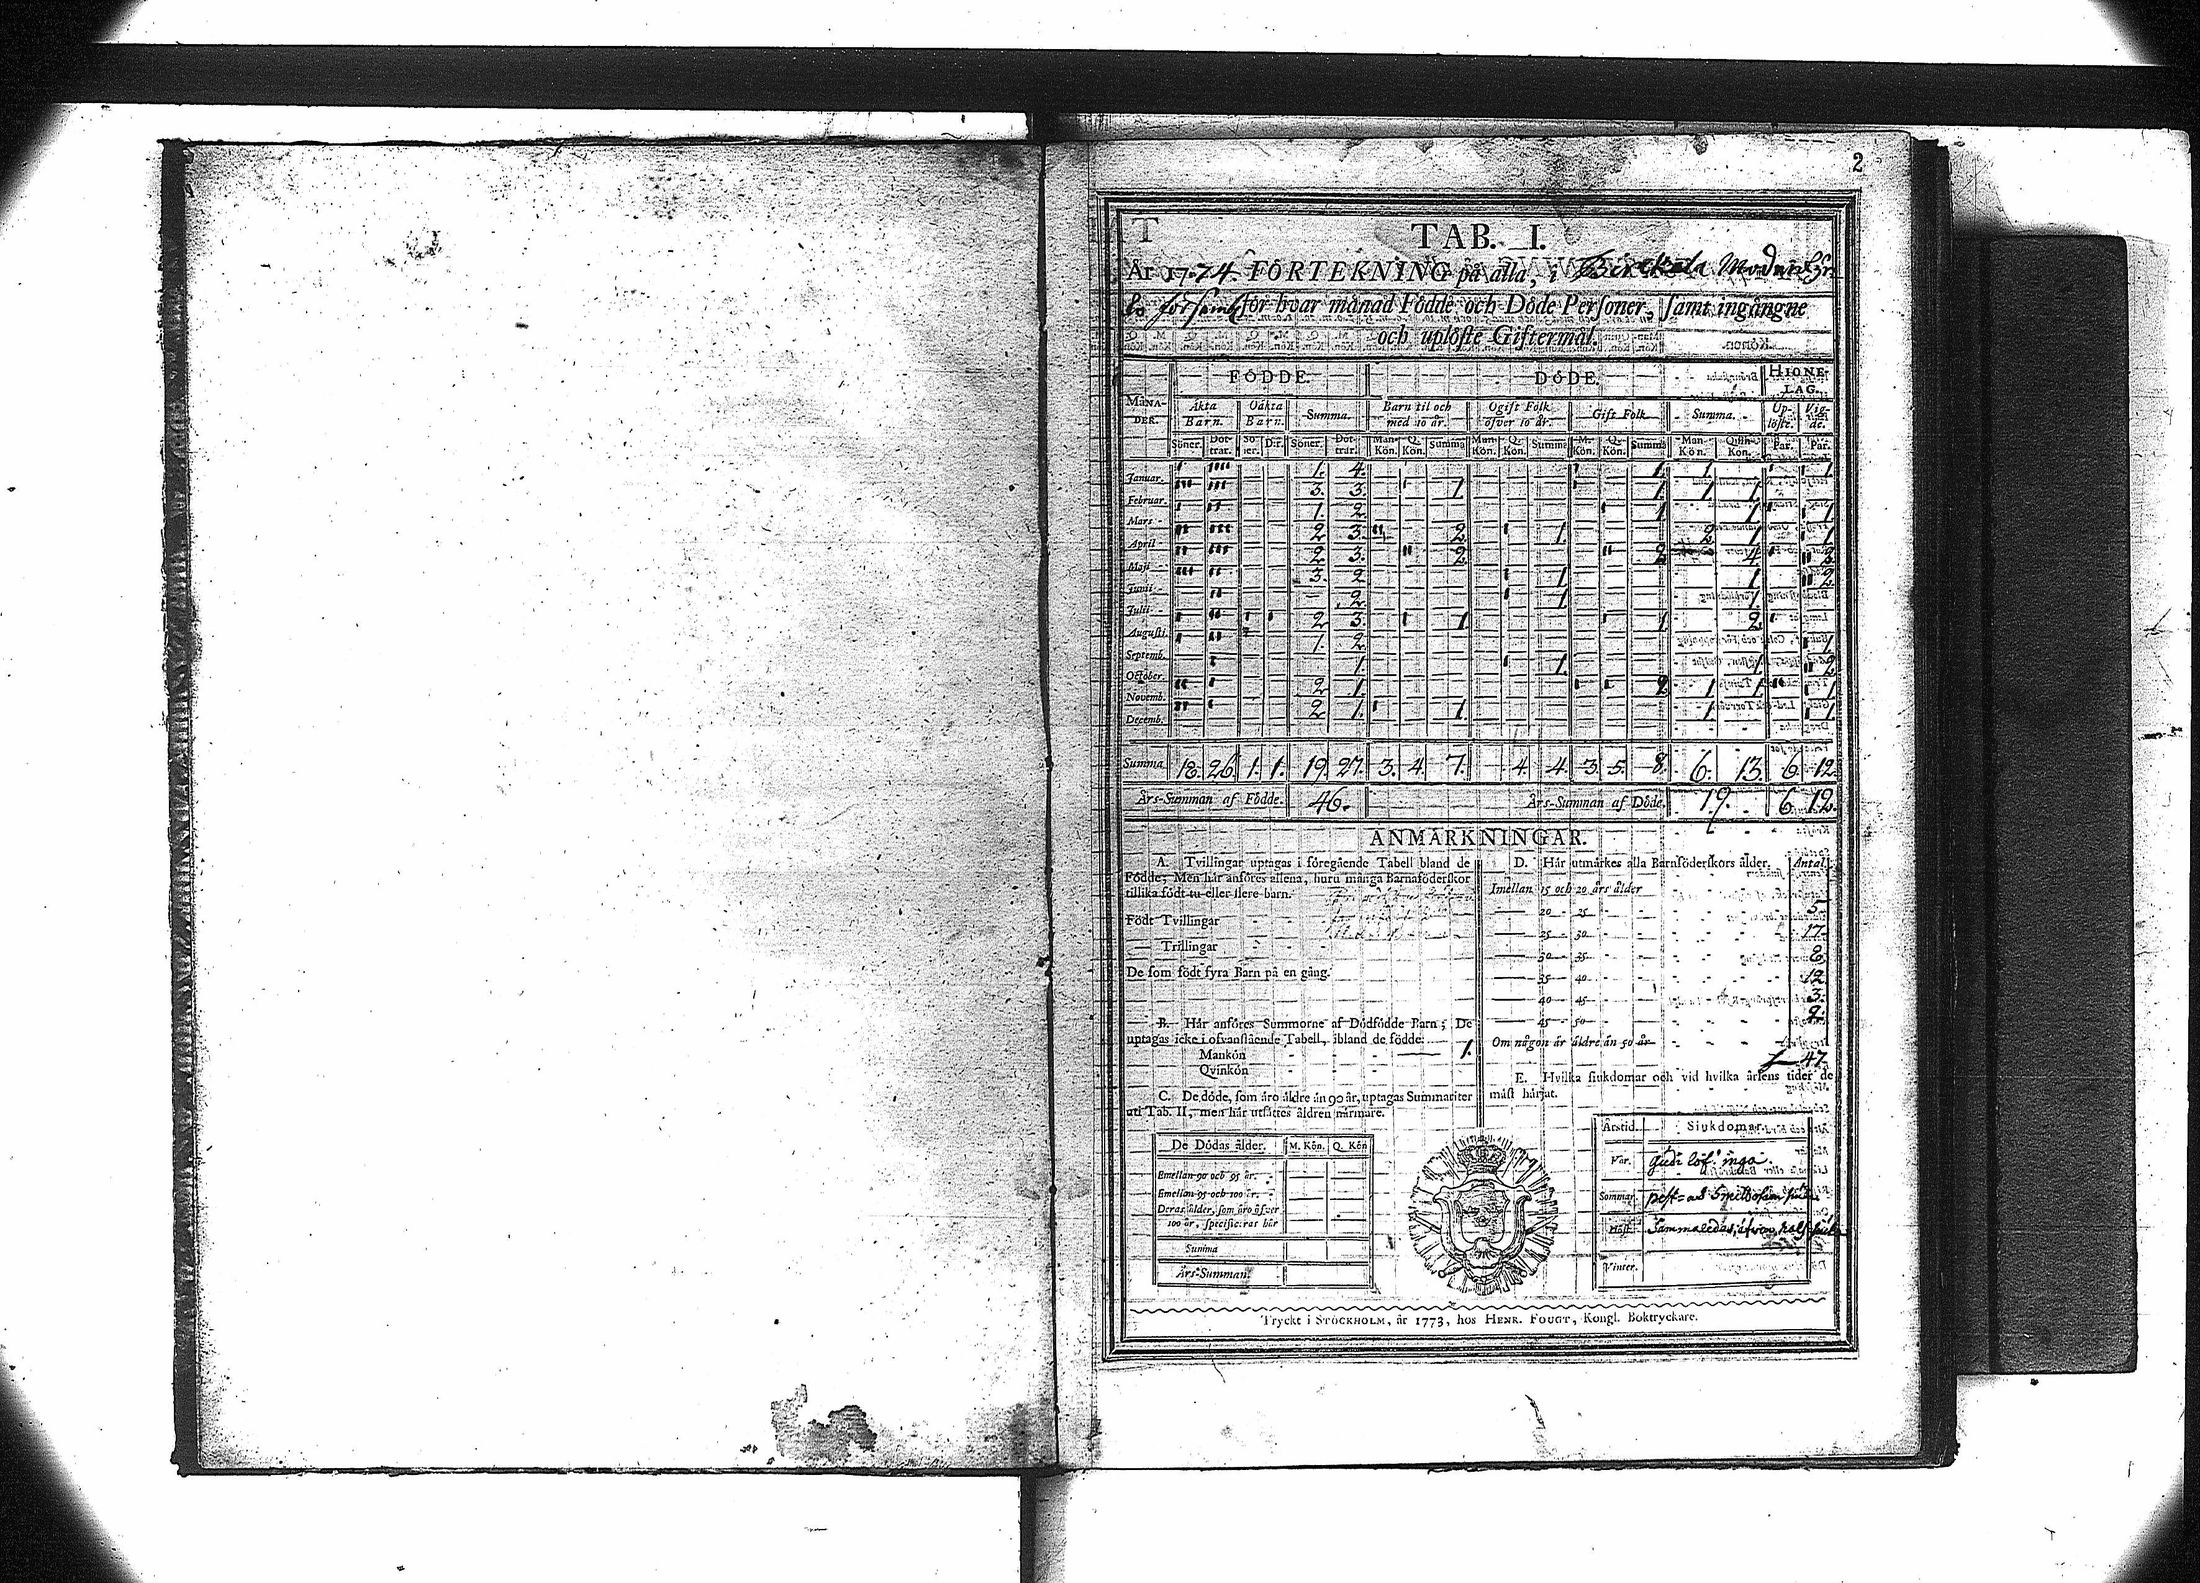 2
TAB. I.
År 1774. FÖRTEKNING på alla, i Birckala Moderkyr
för hvar månad Födde och Döde Personer, samt ingångne
och uplöste Giftermål.
FÖDDE. DÖDE. HIONE-LAG.
MÅNA-DER. Äkta Barn. Oäkta Barn. Summa. Barn til och med 10 år. Ogift Folk öfver 10 år. Gift Folk Summa. Up-löste. Vig-de.
Söner. Döt-trar. Sö-ner. D:r. Söner. Döt-trar. Man-Kön. Q. Kön. Summa Man-Kön. Q. Kön. Summa M. Kön. Q. Kön. Summa Man-Kön. Qvin-Kön. Par. Par.
Januar. 1. 4. 1. 1 1
Februar. 3. 3. 1 1 1 1
Mars 1. 2 1 1 1
April 2 3. 2 1. 2 1 1
Maji 2 3. 2 2 4 2
Junii 3. 2 1 1 2
Julii 2 1 1
Augusti. 2 3. 1 1 2
Septemb. 1. 2 1
October. 1 1. 1 2
Novemb. 2 1. 2 1 1 1
Decemb. 2 1. 1 1 1
Summa 18. 26. 1. 1. 19. 27. 3. 4. 7. 4. 4. 3. 5. 8. 6. 13. 6. 12.
Års-Summan af Födde. 46. Års-Summan af Döde. 19. 6 12.
ANMÄRKNINGAR.
A. Tvillingar uptagas i föregående Tabell bland de
Födde; Men här anföres allena, huru många Barnaföderskor
tillika födt tu eller flere barn.
Födt Tvillingar
Trillingar
De som födt fyra Barn på en gång.
B. Här anföres Summorne af Dödfödde Barn; De
uptagas icke i ofvanstående Tabell, ibland de födde.
Mankön 1.
Qvinkön
C. De döde, som äro äldre än 90 år, uptagas Summariter
uti Tab. II, men här utsättes åldren närmare.
De Dödas ålder. M. Kön. Q. Kön
Emellan 90 och 95 år.
Emellan 95 och 100 år.
Deras ålder, som äro öfver
100 år, specificeras här
Summa
Års-Summan.
D. Här utmärkes alla Barnföderskors ålder. Antal.
Imellan 15 och 20 års ålder
20 - 25 5
25 - 30 17.
30 - 35 8
35 - 40 12
40 - 45 3.
45 - 50 2
Om någon är äldre än 50 år
47.
E. Hvilka siukdomar och vid hvilka årsens tider de
mäst härjat.
Årstid. Siukdomar.
Vår. gudi lof! inga.
Sommar.
Höst. Sammaledes, äfven
Vinter.
Tryckt i STOCKHOLM, år 1773, hos HENR. FOUGT, Kongl. Boktryckare.